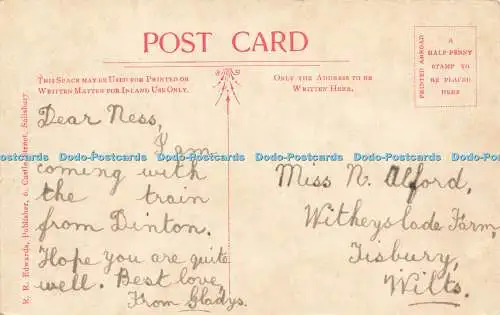 POST CARD
THIS SPACE MAY BE USED FOR PRINTED OR
WRITTEN MATTER FOR INLAND USE ONLY.
ONLY THE ADDRESS TO BE
WRITTEN HERE.
PRINTED ABROAD
A
HALF-PENNY
STAMP TO
BE PLACED
HERE
R. R. Edwards, Publisher, 6, Castle Street, Salisbury
Dear Ness,
I am
coming with
the train
from Dinton.
Hope you are quite
well. Best love
From Gladys.
Miss N. Alford,
Witheyslade Farm,
Tisbury,
Wilts.
Dodo-Postcards Dodo-Postcards Dodo-Postcards Dodo-Postcards Dodo-Postcards